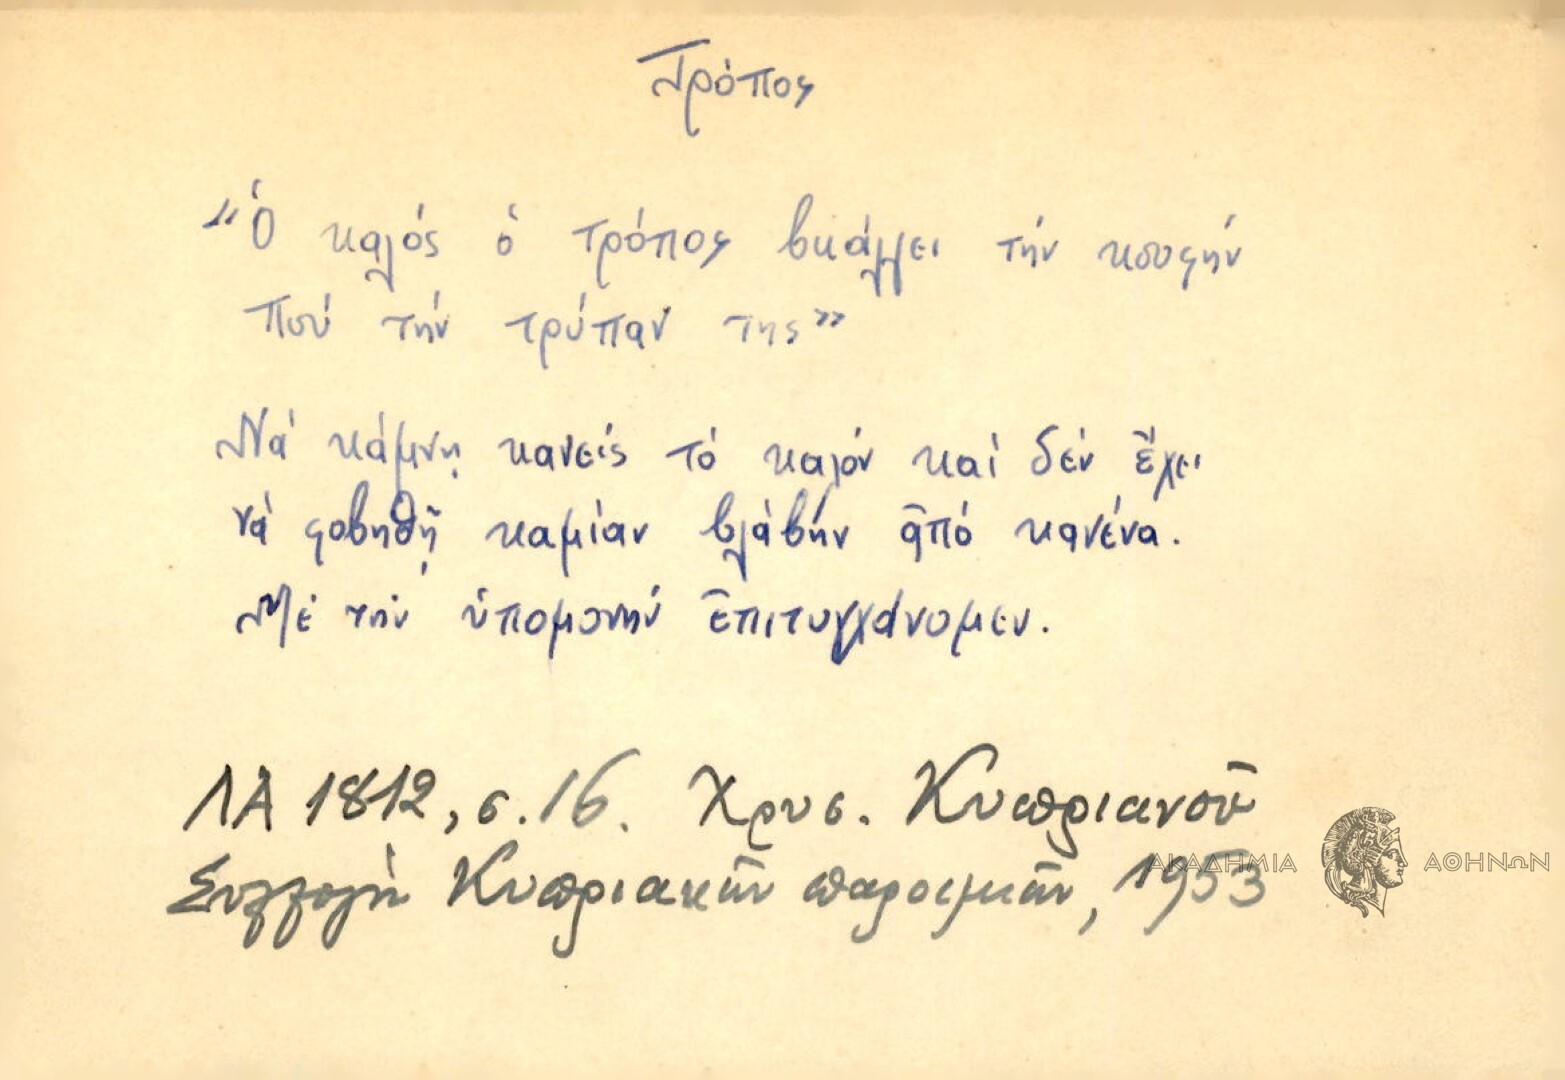 Τρόπος
"Ὁ καλός ὁ τρόπος βκάλλει τήν κουφήν
πού τήν τρύπαν της"
Νά κάμνῃ κανείς τό καλόν καί δέν ἔχει
νά φοβηθῆ καμίαν βλάβην ἀπό κανένα.
Μέ τήν ὑπομονήν ἐπιτυγχάνομεν.
ΛΑ 1812, σ. 16. Χρυσ. Κυπριανοῦ
Συλλογὴ Κυπριακῶν παροιμιῶν, 1953
ΑΚΑΔΗΜΙΑ ΑΘΗΝΩΝ